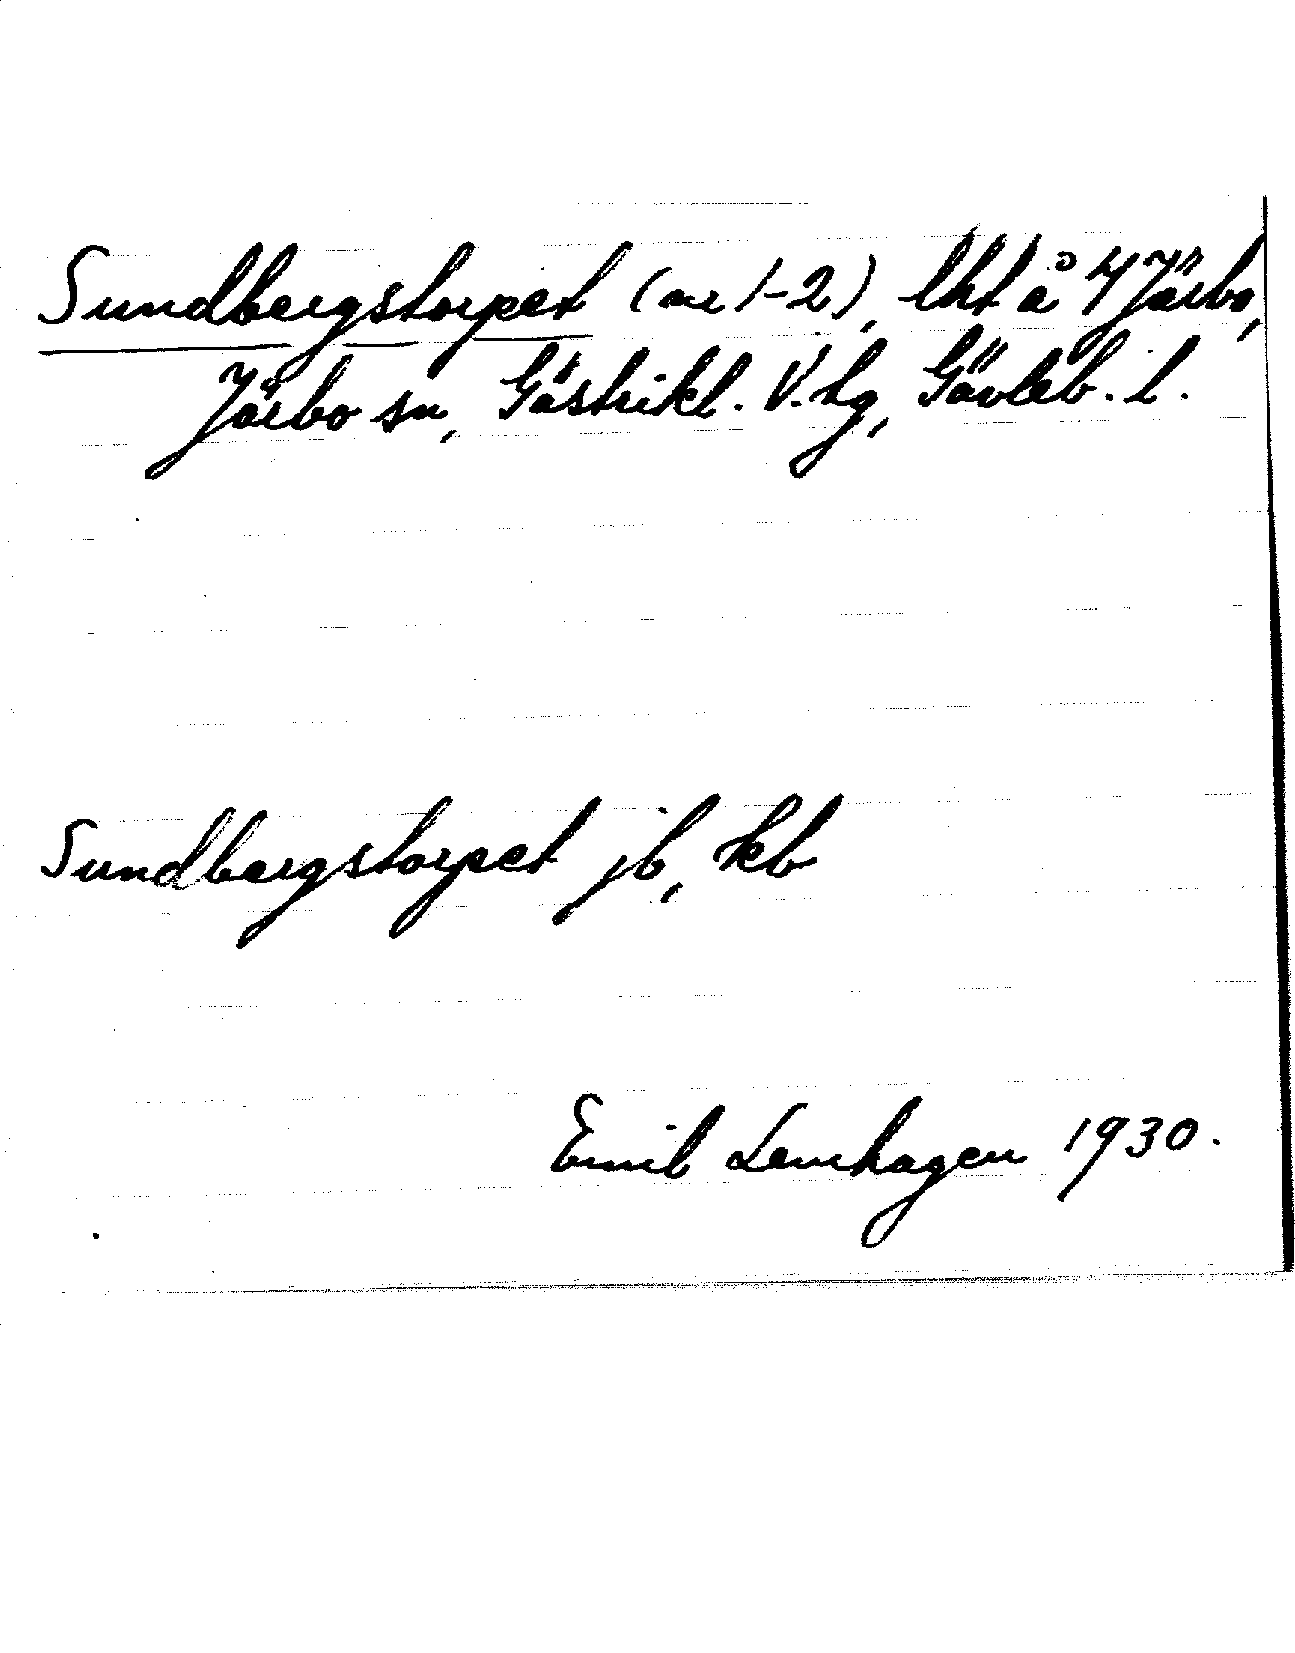 Sundbergstorpet (nr 1-2), lht å 4 Järbo,
Järbo sn, Gästrikl. V. tg, Gävleb. l.
Sundbergstorpet jb, kb
Emil Lenhagen 1930.